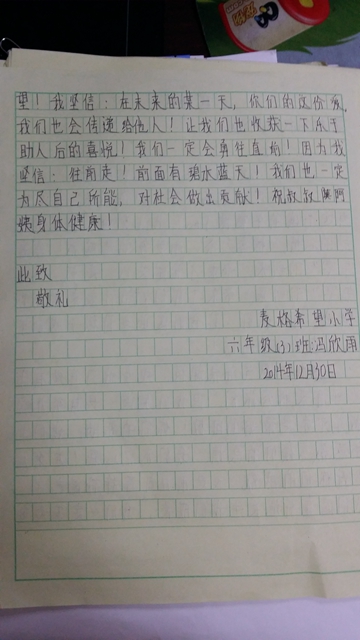 望！我坚信：在未来的某一天，你们的这份爱，
我们也会传递给他人！让我们也收获一下乐于
助人后的喜悦！我们一定会勇往直前！因为我
坚信：往前走！前面有碧水蓝天！我们也一定
为尽自己所能，对社会做出贡献！祝叔叔阿
姨身体健康！
此致
敬礼
麦格希望小学
六年级(3)班:冯欣雨
2014年12月30日